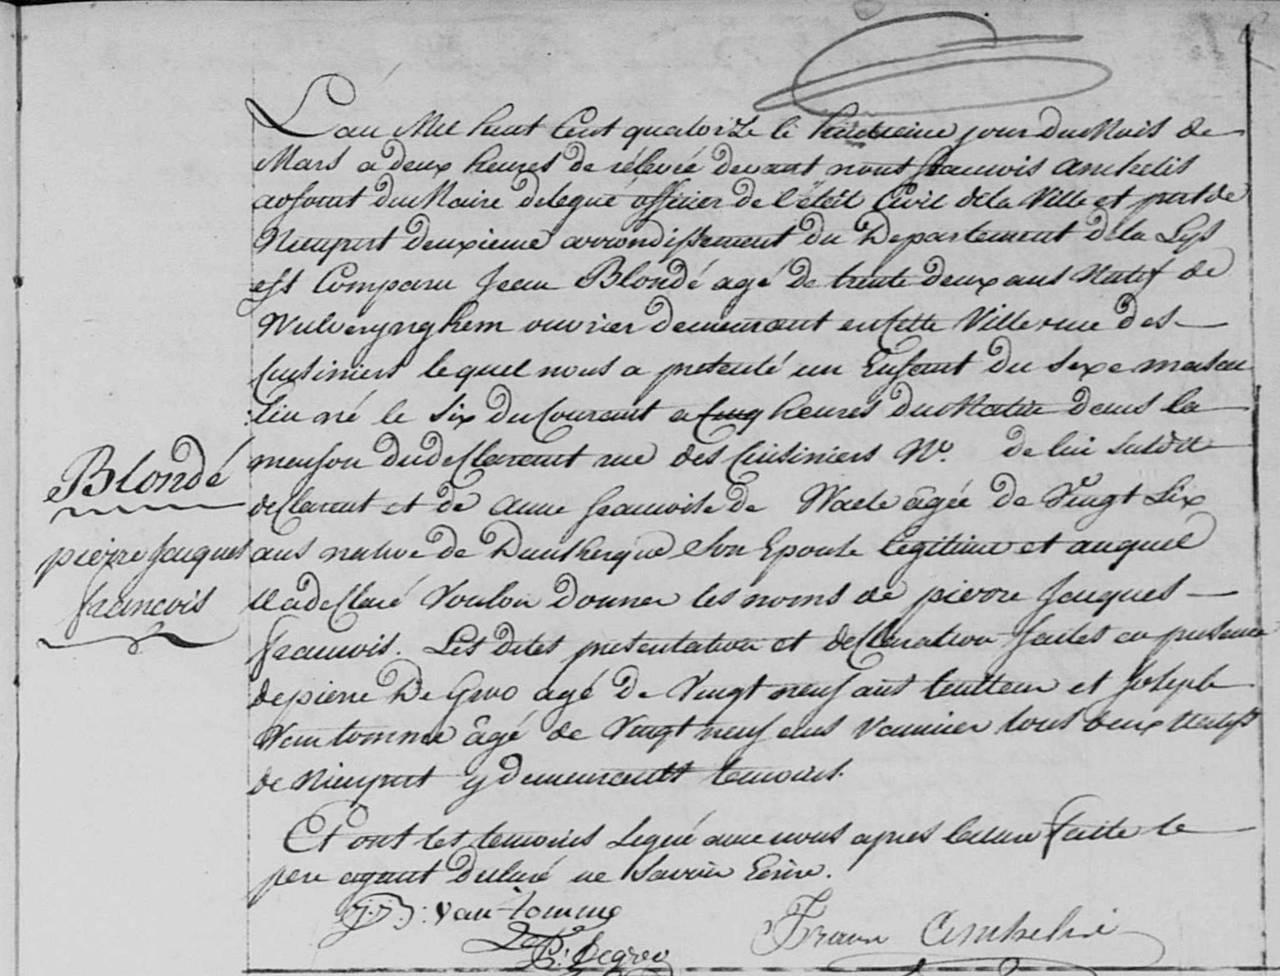 L'an Mil huit Cent quatorze le huitieme jour du Mois de
Mars a deux heures de rélevée devant nous françois Anckelis
adjoint du Maire delegué officier de l'état Civil de la Ville et port de
Nieuport deuxieme arrondissement du Departement de la Lys
est Comparu Jean Blondé agé de trente deux ans Natif de
Wulverynghem ouvrier demeurant en cette Ville rue des
Cuisiniers lequel nous a presenté un Enfant du Sexe mascu
:lin né le Six du Courant a Cinq heures du Matin dans la
maison du declarant rue des Cuisiniers No. de lui Susdit
declarant et de Anne françoise de Waele âgée de Vingt Six
ans native de Dunkerque Son Epouse legitime et auquel
il a declaré Vouloir Donner les noms de pierre Jacques
françois. Les Dites presentation et declaration faites en presence
de pierre De Gevo agé de Vingt neuf ans et Joseph
Vantomme âgé de Vingt neuf ans Vannier tous deux natifs
de Nieuport y demeurants temoins.
Et ont les temoins Signé avec nous apres lecture faite le
pere ayant declaré ne Savoir Ecrire.
Blondé
pierre Jacques
francois
J.J.: van tomme
P: degevo
Frans Anckelis